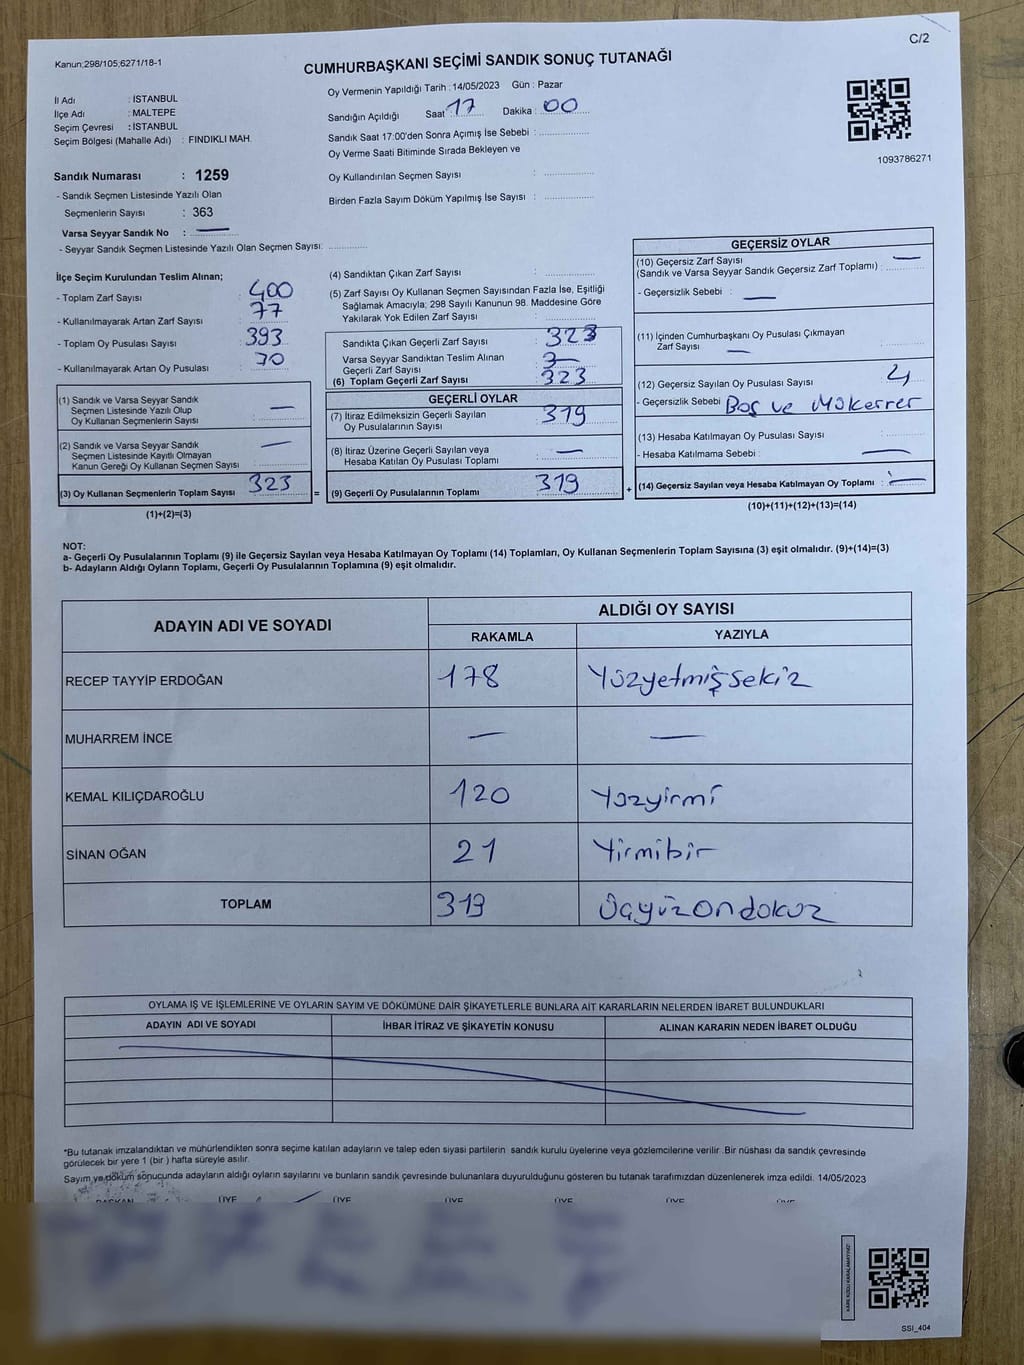 C/2
Kanun;298/105;6271/18-1
CUMHURBAŞKANI SEÇİMİ SANDIK SONUÇ TUTANAĞI
İl Adı : İSTANBUL
İlçe Adı : MALTEPE
Seçim Çevresi : İSTANBUL
Seçim Bölgesi (Mahalle Adı) : FINDIKLI MAH.
Sandık Numarası : 1259
- Sandık Seçmen Listesinde Yazılı Olan
Seçmenlerin Sayısı : 363
Varsa Seyyar Sandık No : —
- Seyyar Sandık Seçmen Listesinde Yazılı Olan Seçmen Sayısı: ............
Oy Vermenin Yapıldığı Tarih : 14/05/2023 Gün : Pazar
Sandığın Açıldığı Saat : 17 Dakika : 00
Sandık Saat 17:00'den Sonra Açımış İse Sebebi : ............
Oy Verme Saati Bitiminde Sırada Bekleyen ve
Oy Kullandırılan Seçmen Sayısı : ............
Birden Fazla Sayım Döküm Yapılmış İse Sayısı : ............
1093786271
İlçe Seçim Kurulundan Teslim Alınan;
- Toplam Zarf Sayısı : 400
- Kullanılmayarak Artan Zarf Sayısı : 77
- Toplam Oy Pusulası Sayısı : 393
- Kullanılmayarak Artan Oy Pusulası : 70
(1) Sandık ve Varsa Seyyar Sandık
Seçmen Listesinde Yazılı Olup
Oy Kullanan Seçmenlerin Sayısı : —
(2) Sandık ve Varsa Seyyar Sandık
Seçmen Listesinde Kayıtlı Olmayan
Kanun Gereği Oy Kullanan Seçmen Sayısı : —
(3) Oy Kullanan Seçmenlerin Toplam Sayısı : 323
(1)+(2)=(3)
(4) Sandıktan Çıkan Zarf Sayısı : ............
(5) Zarf Sayısı Oy Kullanan Seçmen Sayısından Fazla İse, Eşitliği
Sağlamak Amacıyla; 298 Sayılı Kanunun 98. Maddesine Göre
Yakılarak Yok Edilen Zarf Sayısı : ............
Sandıkta Çıkan Geçerli Zarf Sayısı : 323
Varsa Seyyar Sandıktan Teslim Alınan
Geçerli Zarf Sayısı : —
(6) Toplam Geçerli Zarf Sayısı : 323
GEÇERLİ OYLAR
(7) İtiraz Edilmeksizin Geçerli Sayılan
Oy Pusulalarının Sayısı : 319
(8) İtiraz Üzerine Geçerli Sayılan veya
Hesaba Katılan Oy Pusulası Toplamı : —
= (9) Geçerli Oy Pusulalarının Toplamı : 319 +
GEÇERSİZ OYLAR
(10) Geçersiz Zarf Sayısı : —
(Sandık ve Varsa Seyyar Sandık Geçersiz Zarf Toplamı)
- Geçersizlik Sebebi : —
(11) İçinden Cumhurbaşkanı Oy Pusulası Çıkmayan
Zarf Sayısı : —
(12) Geçersiz Sayılan Oy Pusulası Sayısı : 4
- Geçersizlik Sebebi : Boş ve Mükerrer
(13) Hesaba Katılmayan Oy Pusulası Sayısı : ............
- Hesaba Katılmama Sebebi : —
(14) Geçersiz Sayılan veya Hesaba Katılmayan Oy Toplamı : —
(10)+(11)+(12)+(13)=(14)
NOT:
a- Geçerli Oy Pusulalarının Toplamı (9) ile Geçersiz Sayılan veya Hesaba Katılmayan Oy Toplamı (14) Toplamları, Oy Kullanan Seçmenlerin Toplam Sayısına (3) eşit olmalıdır. (9)+(14)=(3)
b- Adayların Aldığı Oyların Toplamı, Geçerli Oy Pusulalarının Toplamına (9) eşit olmalıdır.
ADAYIN ADI VE SOYADI
ALDIĞI OY SAYISI
RAKAMLA YAZIYLA
RECEP TAYYİP ERDOĞAN 178 Yüzyetmişsekiz
MUHARREM İNCE — —
KEMAL KILIÇDAROĞLU 120 Yüzyirmi
SİNAN OĞAN 21 Yirmibir
TOPLAM 319 Üçyüzondokuz
OYLAMA İŞ VE İŞLEMLERİNE VE OYLARIN SAYIM VE DÖKÜMÜNE DAİR ŞİKAYETLERLE BUNLARA AİT KARARLARIN NELERDEN İBARET BULUNDUKLARI
ADAYIN ADI VE SOYADI İHBAR İTİRAZ VE ŞİKAYETİN KONUSU ALINAN KARARIN NEDEN İBARET OLDUĞU
*Bu tutanak imzalandıktan ve mühürlendikten sonra seçime katılan adayların ve talep eden siyasi partilerin sandık kurulu üyelerine veya gözlemcilerine verilir .Bir nüshası da sandık çevresinde
görülecek bir yere 1 (bir ) hafta süreyle asılır.
Sayım ve döküm sonucunda adayların aldığı oyların sayılarını ve bunların sandık çevresinde bulunanlara duyurulduğunu gösteren bu tutanak tarafımızdan düzenlenerek imza edildi. 14/05/2023
BAŞKAN ÜYE ÜYE ÜYE ÜYE ÜYE ÜYE
KARE KODU KARALAMAYINIZ!
SSI_404